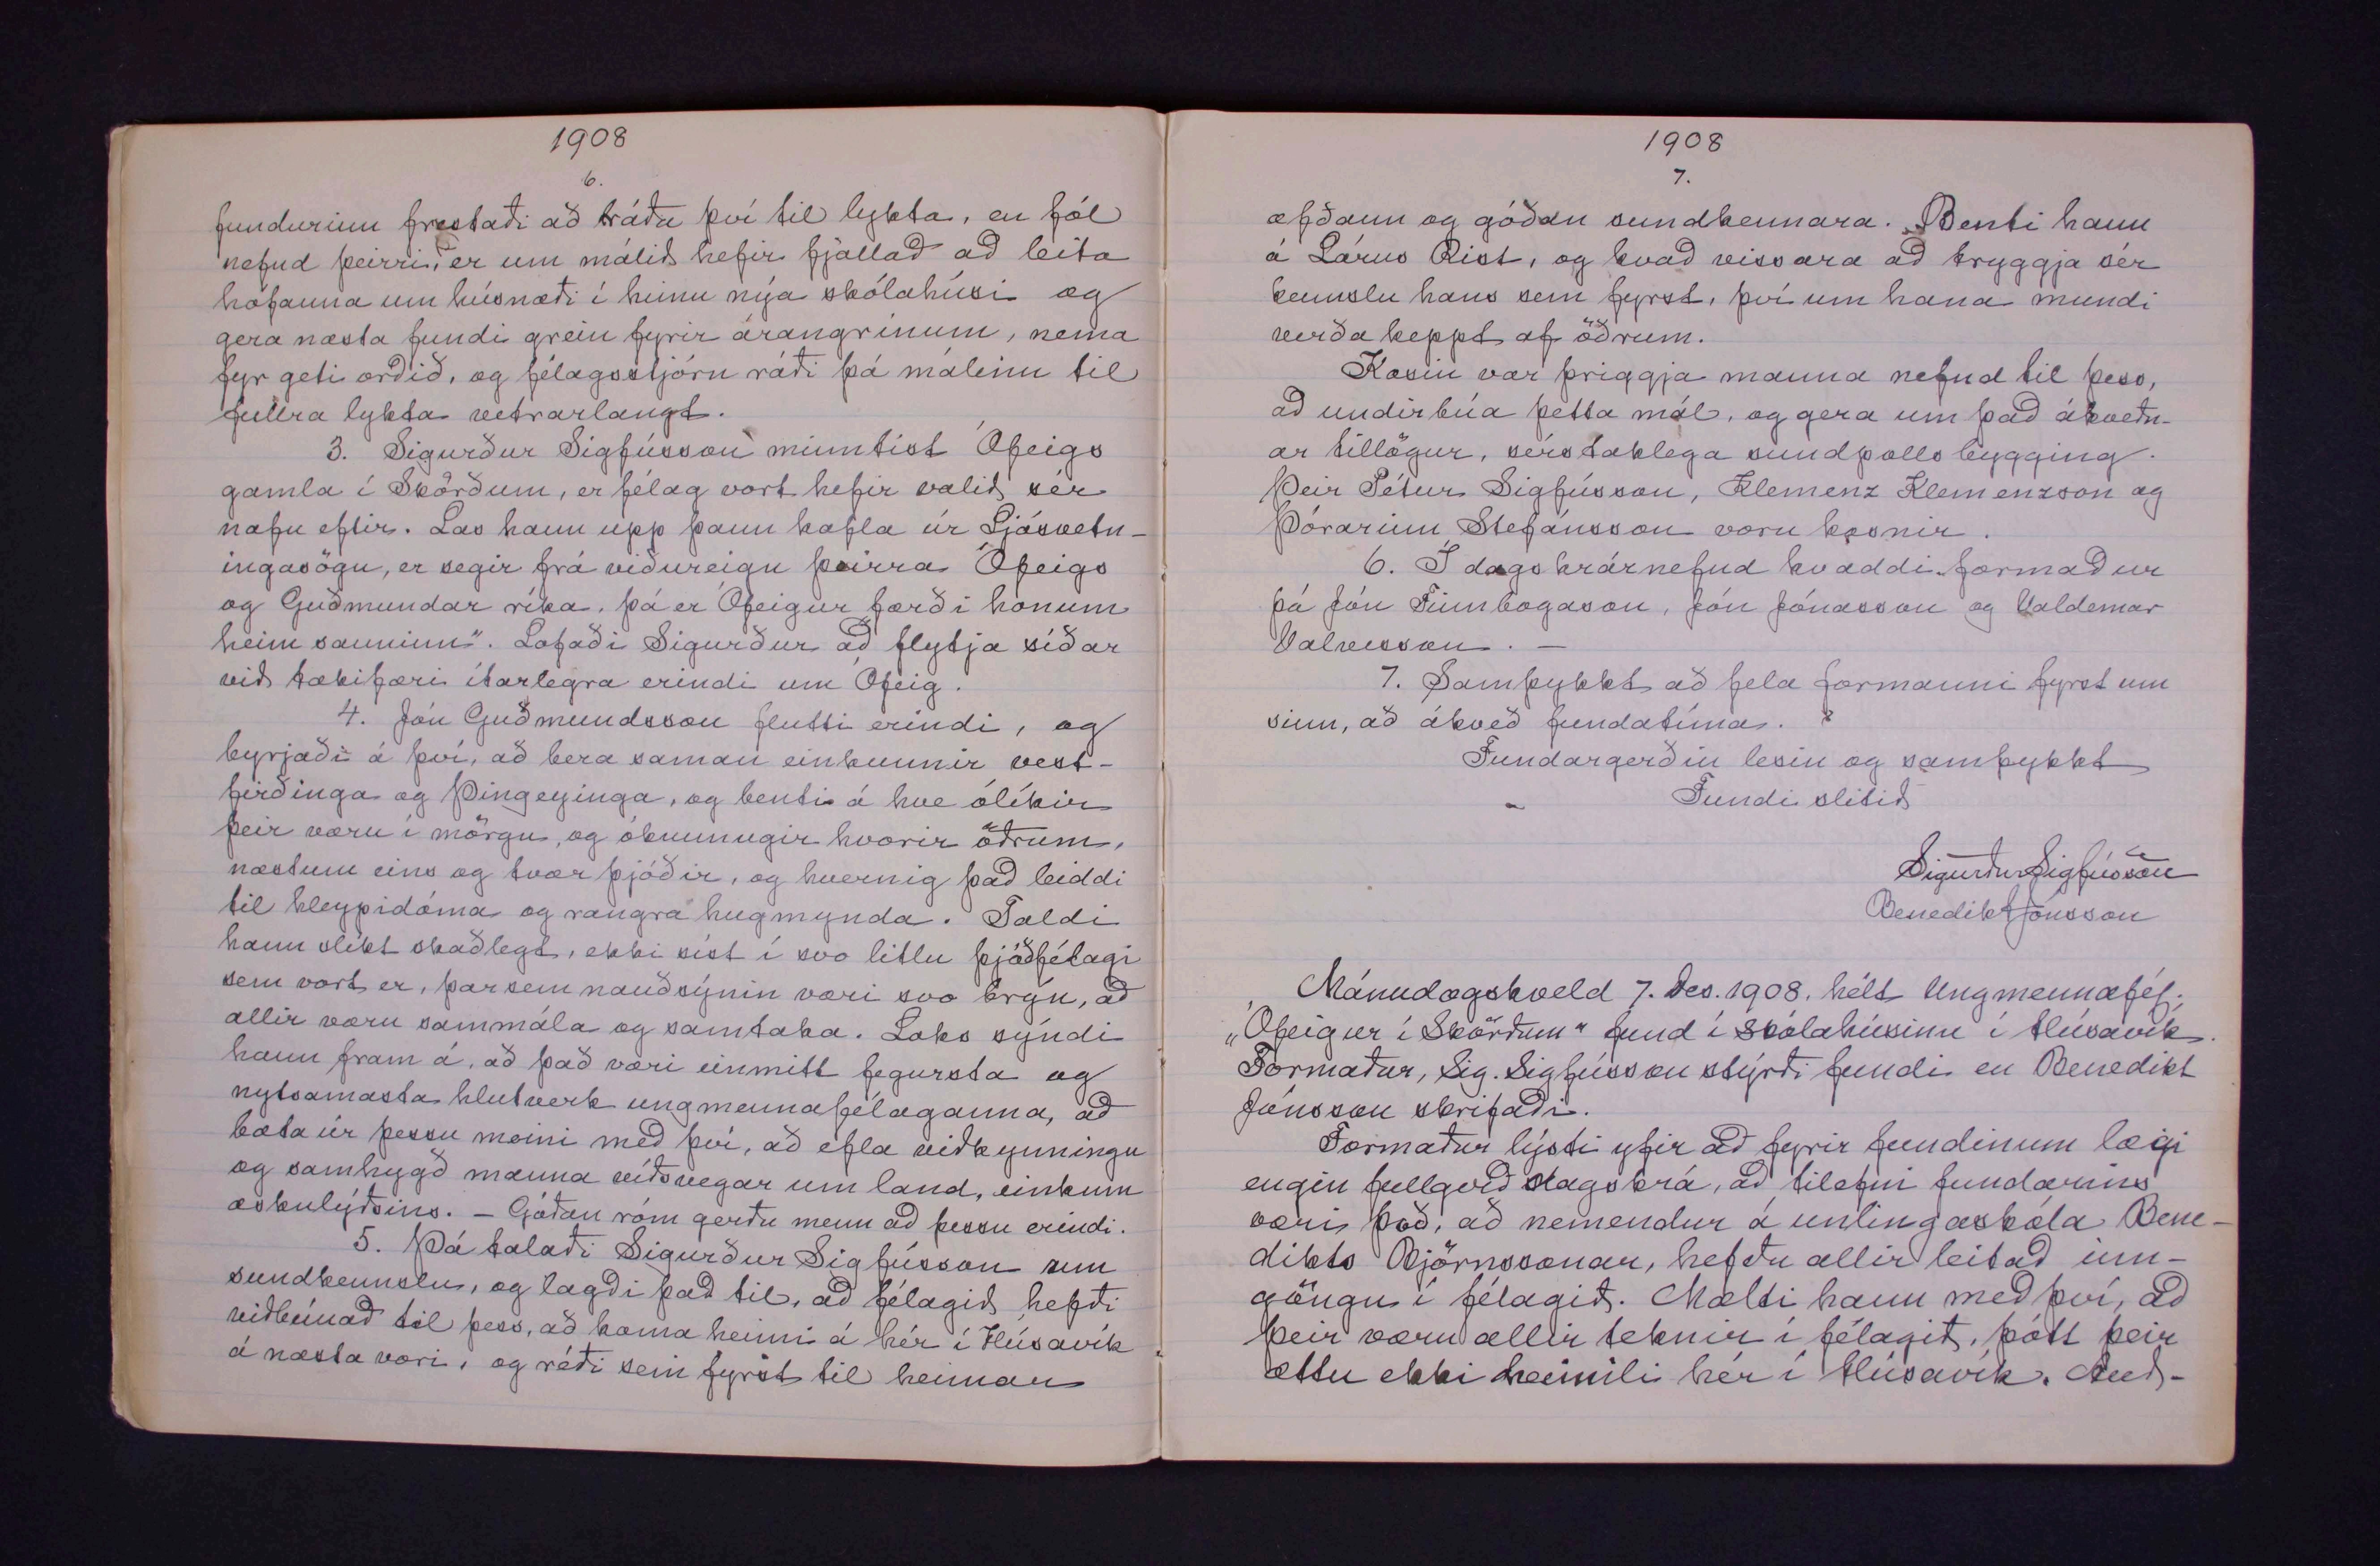 1908
6.
fundurinn frestaði að ráða því til lykta, en fól
nefnd þeirri, er um málið hefir fjallað að leita
hófanna um húsnæði í hinu nýja skólahúsi og
gera næsta fundi grein fyrir árangrinum, nema
fyr geti orðið, og félagsstjórn ráði þá máleinu til
fullra lykta vetrarlangt.
3. Sigurður Sigfússon mintist Ófeigs
gamla í Skörðum, er félag vort hefir valið sér
nafn eftir. Las hann upp þann kafla úr Ljósvetn-
ingasögu, er segir frá viðureign þeirra Ófeigs
og Guðmundar ríka, þá er Ófeigur færði honum
heim sanninn". Lofaði Sigurður að flytja síðar
við tækifæri ítarlegra erindi um Ófeig.
4. Jón Guðmundsson flutti erindi, og
byrjaði á því, að bera saman einkunnir vest-
firðinga og Þingeyinga, og benti á hve ólíkir
þeir væru í mörgu, og ókunnugir hvorir öðrum,
næstum eins og tvær þjóðir, og hvernig það leiddi
til hleypidóma og rangra hugmynda. Taldi
hann slíkt skaðlegt, ekki síst í svo litlu þjóðfélagi
sem vort er, þar sem nauðsýnin væri svo brýn, að
allir væru sammála og samtaka. Loks sýndi
hann fram á, að það væri einmitt fegursta og
nytsamasta hlutverk ungmennafélaganna, að
bæta úr þessu meini með því, að efla viðkynningu
og samhygð manna víðsvegar um land, einkum
æskulýðsins. – Góðan róm gerðu menn að þessu erindi.
5. Þá talaði Sigurður Sigfússon um
sundkennslu, og lagði það til, að félagið hefði
viðbúnað til þess, að koma henni á hér í Húsavík
á næsta vori, og réði sem fyrst til hennar
1908
7.
æfðann og góðan sundkennara. Benti hann
á Lárus Rist, og kvað vissara að tryggja sér
kennslu hans sem fyrst, því um hana mundi
verða keppt af öðrum.
Kosin var þriggja manna nefnd til þess,
að undirbúa þetta mál, og gera um það ákveðn-
ar tillögur, sérstaklega sundpolls bygging.
Þeir Pétur Sigfússon, Klemenz Klemenzson og
Þórarinn Stefánsson voru kosnir.
6. Í dagskrárnefnd kvaddi formaður
þá Jón Finnbogason, Jón Jónasson og Valdemar
Valvesson. –
7. Samþykkt að fela formanni fyrst um
sinn, að ákveð fundatíma.
Fundargerðin lesin og samþykkt
Fundi slitið
Sigurður Sigfússon
Benedikt Jónsson
Mánudagskveld 7. Des. 1908. hélt Ungmennafél.
„Ófeigur í Skörðum" fund í skólahúsinu í Húsavík.
Formaður, Sig. Sigfússon stýrði fundi en Benedikt
Jónsson skrifaði.
Formaður lýsti yfir að fyrir fundinum lægi
engin fullgerð dagskrá, að tilefni fundarins
væri það, að nemendur á unlingaskóla Bene-
dikts Björnssonar, hefðu allir leitað inn-
göngu í félagið. Mælti hann með því, að
þeir væru allir teknir í félagið, þótt þeir
ættu ekki heimili hér í Húsavík. Auð-